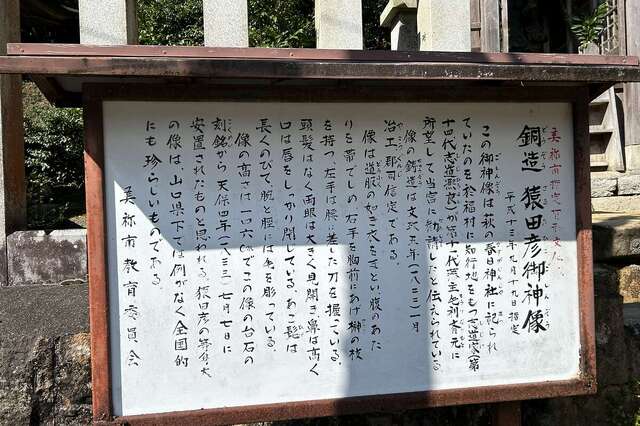 美祢市指定有形文化
銅造 猿田彦御神像
平成十三年九月十九日指定
この御神像は萩の春日神社に祀られ
ていたのを於福村に知行地をもつ志道家第
十四代志道熊良が第十一代藩主毛利斉元に
所望して当宮に勧請したと伝えられている
像の鋳造は文政五年(一八二二)一月
冶工郡司信定である。
像は道服の如き衣をまとい腹のあた
りを帯でしめ右手を胸前にあげ榊の枝
を持つ左手は腰に差た刀を握っている。
頭髪はなく両眼は大きく見開き鼻は高く
口は唇をしっかり閉じている。あご髭は
長くのびて、腕と脛には毛を彫っている。
像の高さは一六〇㎝でこの像の台石の
刻銘から天保四年(一八三三)七月七日に
安置されたものと思われる。猿田彦の等身大
の像は、山口県下では例がなく全国的
にも珍らしいものである。
美祢市教育委員会